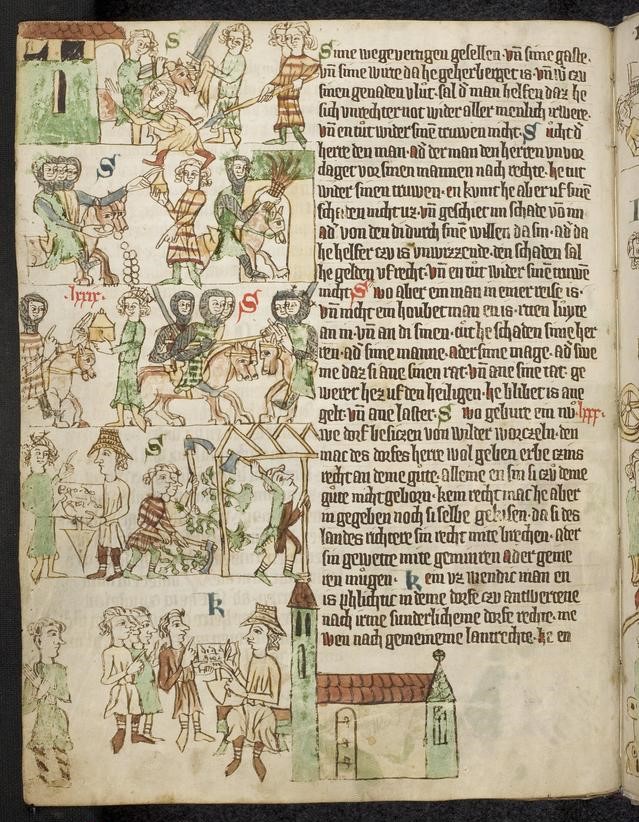 Sine wegevertigen gesellen · vn̄ sine gaste ·
vn̄ sinē wirte da he geherberget is · vn̄ w czu
sinen genaden vlut · sal d man helfen daz he
sich vnrechter not wider aller menlich irwere ·
vn̄ en tut wider sinē truwen nicht · Sucht d
herre den man · ad der man den herren vn vor
claget vor sinen mannen nach rechte · he tut
wider sinen truwen · en kvmt he aber vf sinē
schaden nicht uz · vn̄ geschiet im schade
ad von den di durch sinē willen da sin · ad da
he helfer czu is vnvorczende · den schaden sal
he gelden vf recht · vn̄ en tut wider sinē truwē
nicht · Swo aber ein man in einer reise is ·
vn̄ nicht ein houbet man en is · riten luyte
an in · vn̄ an di sinen · tut he schaden sime her
ren · ad sime manne · ader sime mage · ad swe
me daz si ane sinen rat · vn̄ ane sine tat · ge
weret hez uf den heiligen · he blibet is ane
gelt · vn̄ ane laster · Swo gebure ein nu
·lxxx·
·lxx·
we dorf besiczen von wilder worczeln · den
mac des dorfes herre wol geben erbe czins
recht an deme gute · alleine en sin si czu deme
gute nicht geborn · kein recht mac he aber
in gegeben noch si selbe gekisen · da si des
landes richtere sin recht mite brechen · ader
sin gewette mite geminren ader geme
ren mugen · Kein vz wendic man en
is phlichtic in deme dorfe czu antwertene
nach irme sunderlicheme dorfe rechte · me
wen nach gemeineme lantrechte · he en
S
S
S
S
k